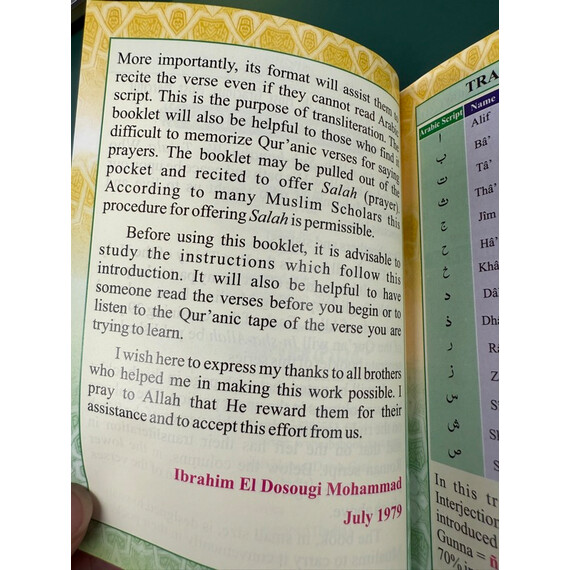 More importantly, its format will assist them to
recite the verse even if they cannot read Arabic
script. This is the purpose of transliteration. The
booklet will also be helpful to those who find it
difficult to memorize Qur'anic verses for saying
prayers. The booklet may be pulled out of the
pocket and recited to offer Salah (prayer).
According to many Muslim Scholars this
procedure for offering Salah is permissible.
Before using this booklet, it is advisable to
study the instructions which follow this
introduction. It will also be helpful to have
someone read the verses before you begin or to
listen to the Qur'anic tape of the verse you are
trying to learn.
I wish here to express my thanks to all brothers
who helped me in making this work possible. I
pray to Allah that He reward them for their
assistance and to accept this effort from us.
Ibrahim El Dosougi Mohammad
July 1979
TRA
Arabic Script Name
Alif
ب Bâ'
ت Tâ'
ث Thâ'
ج Jîm
ح Hâ'
خ Khâ
د Dâ
ذ Dh
ر R
ز Z
س S
ش Sh
ص S
In this tr
Interjection
introduced
Gunna = ñ
70% in